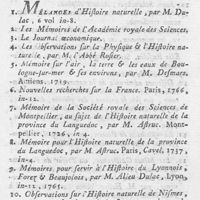 1. MELANGES d'Histoire naturelle, par M. Du-
lac, 6 vol in-8.
2. Les Mémoires de l'Académie royale des Sciences.
3. Le Journal œconomique.
4. Les Observations sur la Physique & l'Histoire na-
turelle, par M. l'Abbé Rosier.
5. Mémoire sur l'air, la terre & les eaux de Bou-
logne-sur-mer & ses environs, par M. Desmars.
Amiens, 1759.
6. Nouvelles recherches sur la France. Paris, 1766,
in-12.
7. Mémoire de la Société royale des Sciences de
Montpellier, au sujet de l'Histoire naturelle de la
province du Languedoc, par M. Astruc. Mont-
pellier, 1726, in-4.
8. Mémoire pour l'Histoire naturelle de la province
du Languedoc, par M. Astruc. Paris, Cavel, 1737,
in-4.
9. Mémoires pour servir à l'Histoire du Lyonnois,
Forez & Beaujolois, par M. Aleon Dulac, Lyon,
in-12, 1765.
10. Observations sur l'Histoire naturelle de Nismes,